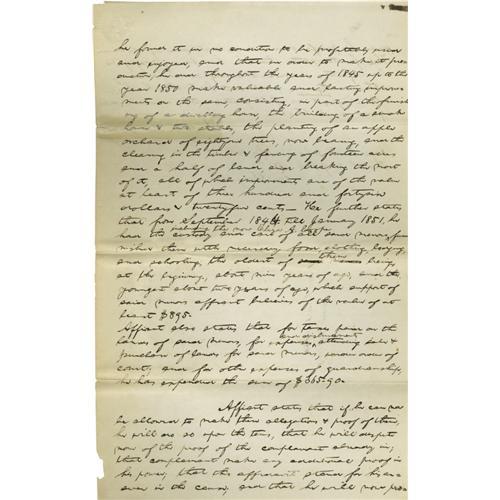 he found it in no condition to be profitably used
and enjoyed, and that in order to make it pro-
ductive, he did throughout the years of 1845 up to the
year 1850 make valuable and lasting improve-
ments on the same, consisting, in part of the finish-
ing of a dwelling house, the building of a smoke
house & two stables, the planting of an apple
orchard of eighty four trees, now bearing, and the
clearing in the timber & fencing of fourteen acres
and a half of land and breaking the most
of it, all of which improvements are of the value
at least of three hundred and forty six
dollars & twenty five cents — He further states
that from September 1844 till January 1851, he
had the custody and care of all said minors,
nished them with necessary food, clothing, lodging,
and schooling, the oldest of them being,
at the beginning, about nine years of age, and the
youngest about two years of age, which support of
said minors affiant believes of the value of at
least $895.
Affiant also states that for taxes paid on the
lands of said minors, for expenses, attending sales &
purchases of lands for said minors, various orders of
court, and for other expenses of guardianship,
he has expended the sum of $365.90.
Affiant states that if he can now
be allowed to make these allegations & proof of them,
he will do so upon the terms, that he will accept
now of the proof of the complainant already in,
that complainant make any additional proof in
his power, that this affiant stand for his
in the cause, and that he will now